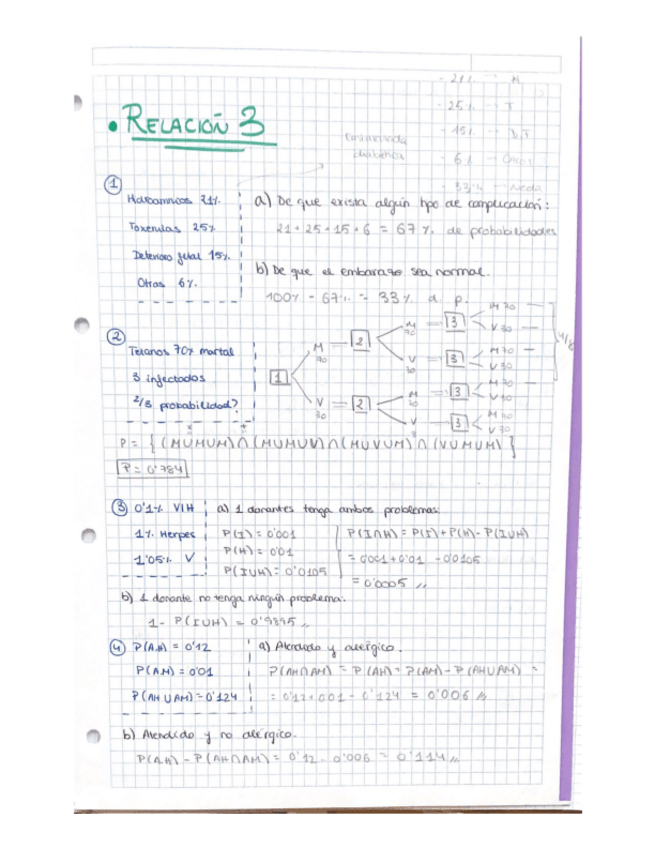 • RELACIÓN 3
- 21% → M
- 25% → T
- 15% → D.T
- 6% → Otros
- 33% → Nada
①
Hidroamnios 21%
Toxemias 25%
Deterioro fetal 15%
Otras 6%
a) De que exista algún tipo de complicación:
21 + 25 + 15 + 6 = 67 % de probabilidades
b) De que el embarazo sea normal.
100% - 67% = 33% d. p.
②
Tetanos 70% mortal
3 infectados
2/3 probabilidad?
1
M 70
V 30
2
2
M 70
V 30
M
V
3
3
3
3
M 70
V 30
M 70
V 30
M 70
V
M
V
4/8
P = { (MUMUM) ∩ (MUMUV) ∩ (MUVUM) ∩ (VUMUM) }
P = 0'784
③ 0'1% VIH
1% Herpes
1'05% V
a) 1 donantes tenga ambos problemas:
P(I) = 0'001
P(H) = 0'01
P(IUH) = 0'0105
P(I∩H) = P(I) + P(H) - P(IUH)
= 0'001 + 0'01 - 0'0105
= 0'0005 //
b) 1 donante no tenga ningún problema:
1 - P(IUH) = 0'9895 //
④ P(A.H) = 0'12
P(A.M) = 0'01
P(AH U AM) = 0'124
a) Atendido y alérgico.
P(AH∩AM) = P(AH) + P(AM) - P(AHUAM) =
= 0'12 + 0'01 - 0'124 = 0'006 //
b) Atendido y no alérgico.
P(A.H) - P(AH∩AM) = 0'12 - 0'006 = 0'114 //